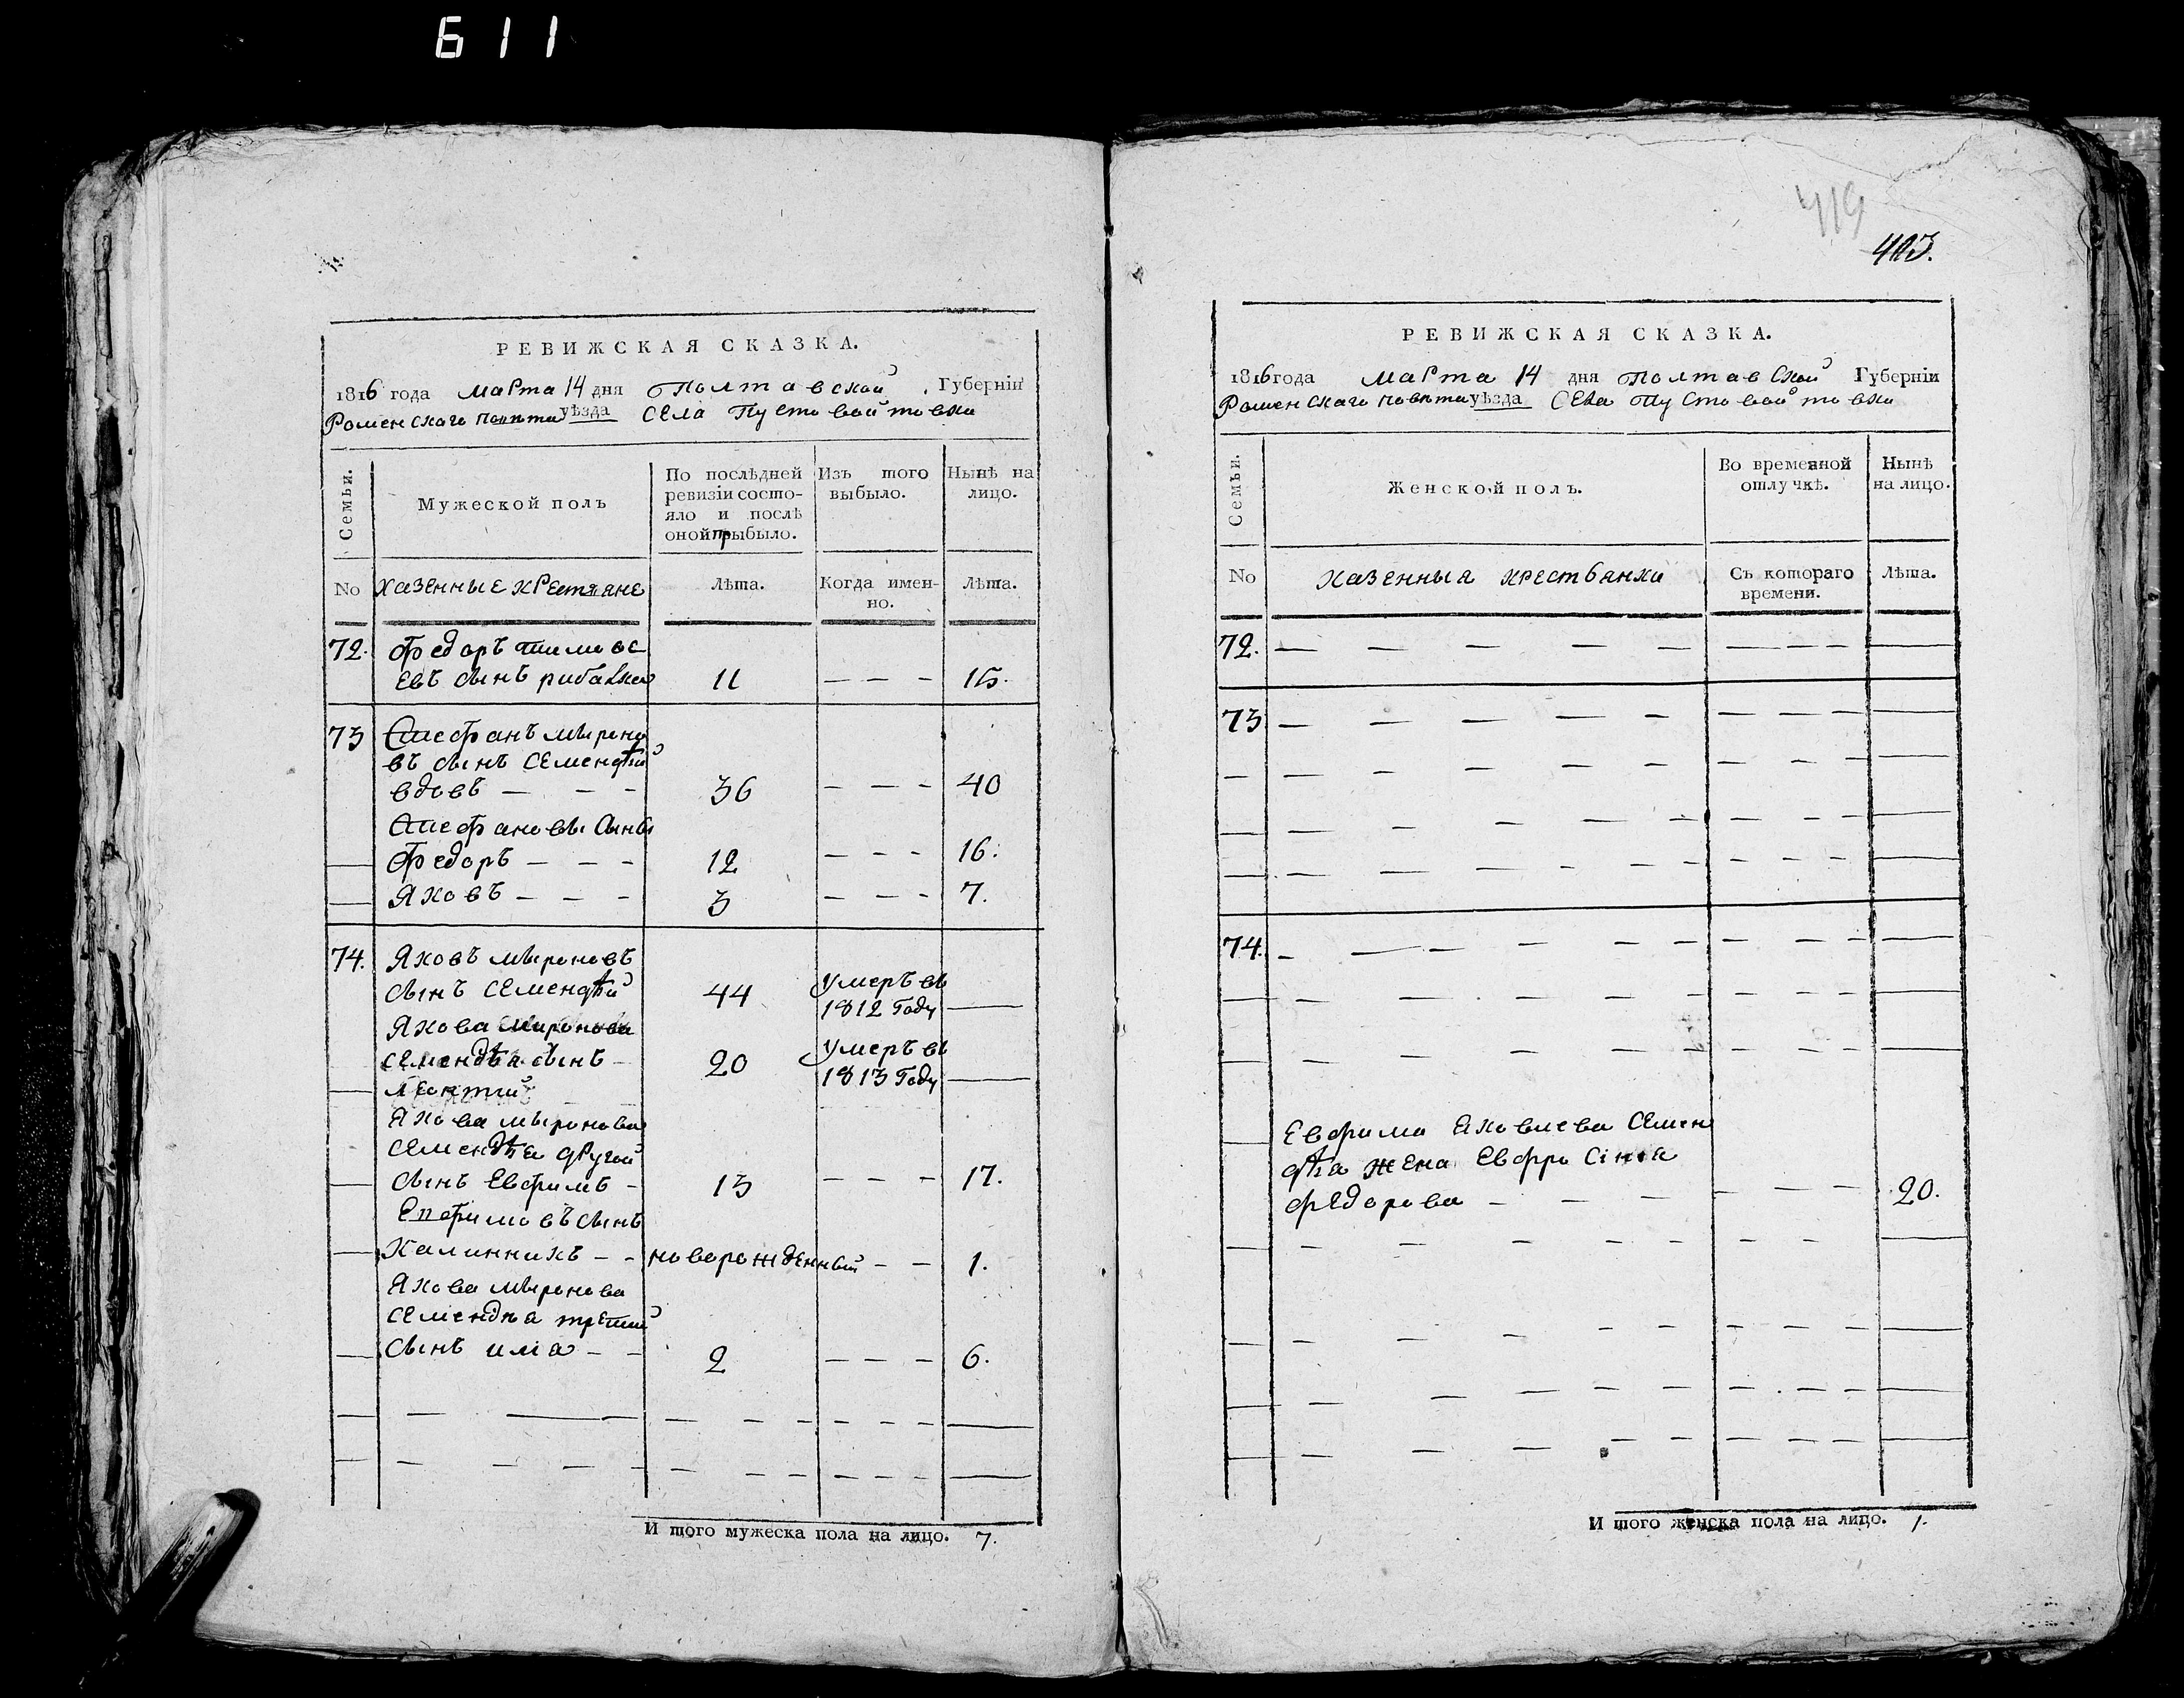 611
РЕВИЖСКАЯ СКАЗКА.
1816 года марта 14 дня Полтавской Губерніи
Роменскаго повѣта уѣзда села Пустовойтовки
Семьи.
Мужеской полъ
По послѣдней ревизіи состо-
яло и послѣ
оной прыбыло.
Изъ того
выбыло.
Нынѣ на
лицо.
No казенные крестяне
Лѣта.
Когда имен-
но.
Лѣта.
72. Федоръ Тимоѳе
евъ сынъ 11 – – – 15.
73 Стефанъ Мыроно
въ сынъ Семендѣй
вдовъ – – – 36 – – – 40
Стефановы сыны
Федоръ – – – 12 – – – 16.
Яковъ – – – 3 – – – 7.
74. Яковъ Мыроновъ
сынъ Семендѣй 44 Умеръ въ 1812 Году —
Якова Миронова
Семендѣя сынъ – 20 Умеръ въ 1813 Году —
Леонтий
Якова Мыронова
Семендѣя другой
сынъ Евфимъ – 13 – – – 17.
Епфимовъ сынъ
Калинникъ – – новорожденный – – 1.
Якова Мыронова
Семендѣя третий
сынъ илia – – 2 – – – 6.
И того мужеска пола на лицо. 7.
419
403.
РЕВИЖСКАЯ СКАЗКА.
1816 года марта 14 дня Полтавской Губерніи
Роменскаго повѣта уѣзда села Пустовойтовки
Семьи.
Женской полъ.
Во временной
отлучкѣ.
Нынѣ
на лицо.
No казенныя крестьянки
Съ котораго
времени.
Лѣта.
72.
73
74.
Евфима Яковлева Семен
дѣя жена Евфросінiя
Федорова – – – – – – 20.
И того женска пола на лицо. 1.